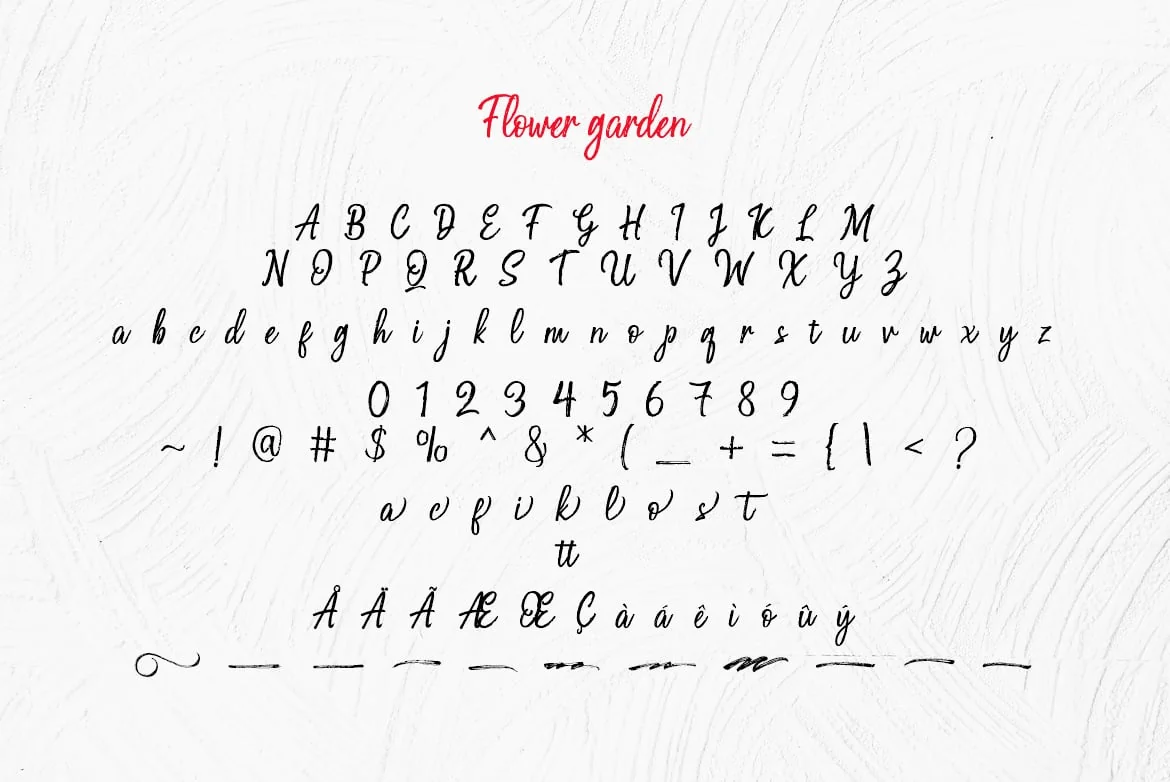 Flower garden
A B C D E F G H I J K L M
N O P Q R S T U V W X Y Z
a b c d e f g h i j k l m n o p q r s t u v w x y z
0 1 2 3 4 5 6 7 8 9
~ ! @ # $ % ^ & * ( _ + = { | < ?
a c f i k l o s t
tt
Å Ä Ã Æ Œ Ç à á ê ì ó û ý